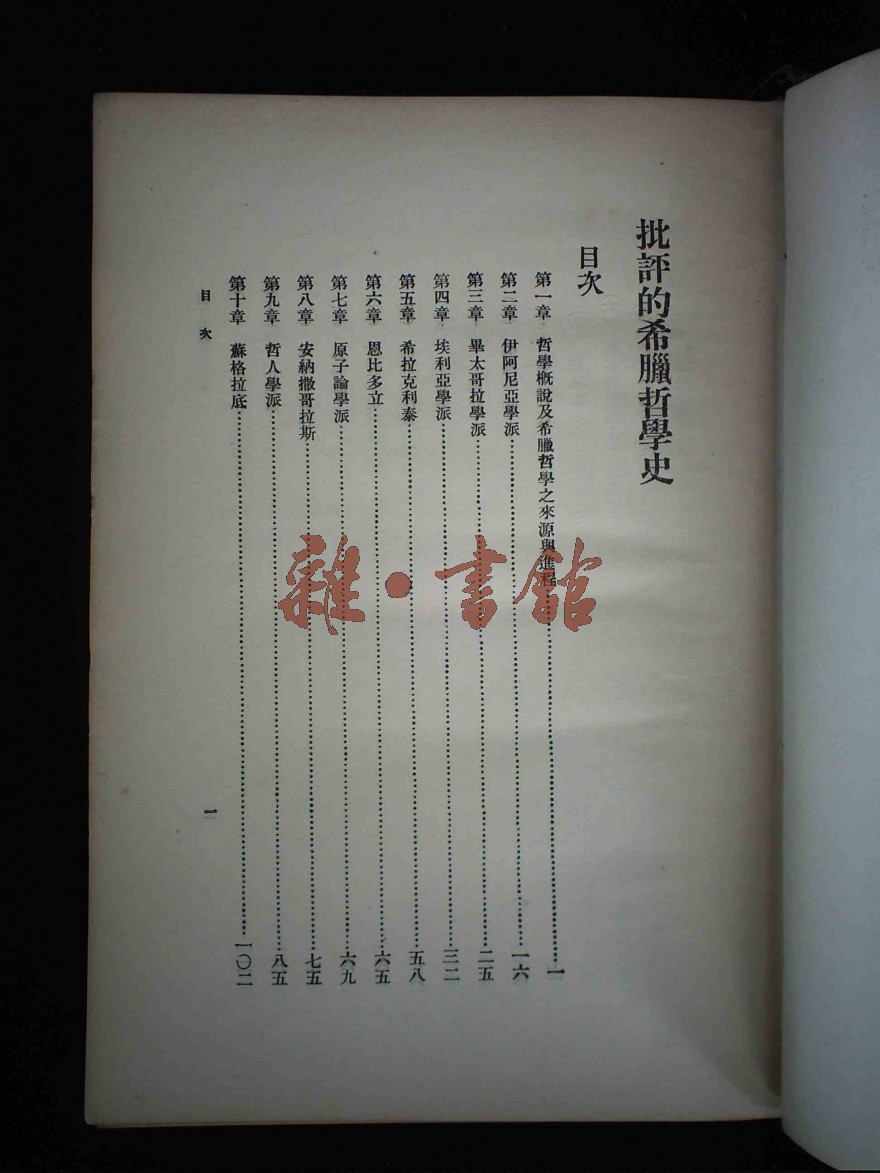 批評的希臘哲學史
目次
第一章 哲學概說及希臘哲學之來源與進程……一
第二章 伊阿尼亞學派……一六
第三章 畢太哥拉學派……二五
第四章 埃利亞學派……三二
第五章 希拉克利泰……五八
第六章 恩比多立……六五
第七章 原子論學派……六九
第八章 安納撒哥拉斯……七五
第九章 哲人學派……八五
第十章 蘇格拉底……一〇二
目次 一
雜·書館